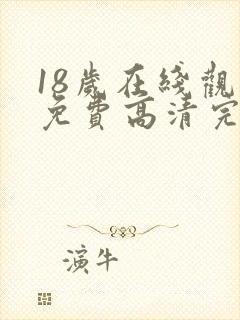 18歲在綫觀
免費高清完
演牛